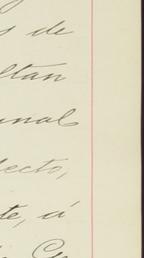 s de
ltan
unal
fecto,
te, á